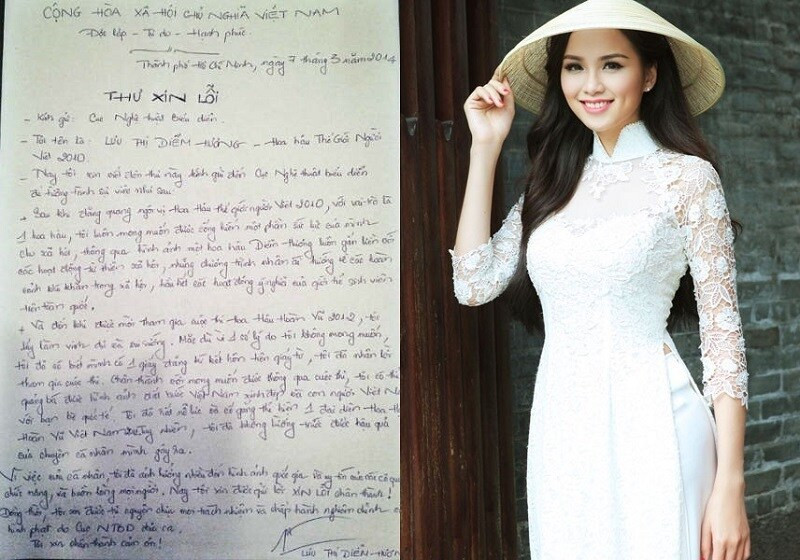 CỘNG HÒA XÃ HỘI CHỦ NGHĨA VIẾT NAM
Độc lập - Tự do - Hạnh phúc.
Thành phố Hồ Chí Minh, ngày 7 tháng 3 năm 2014
THƯ XIN LỖI
- Kính gửi: Cục Nghệ thuật Biểu diễn.
- Tôi tên là: LƯU THỊ DIỄM HƯƠNG - Hoa hậu Thế Giới Người
Việt 2010.
- Nay tôi xin viết đơn thư này kính gửi đến Cục Nghệ thuật biểu diễn
để tường trình sự việc như sau
+ Sau khi đăng quang ngôi vị Hoa Hậu thế giới người Việt 2010, với vai trò là
1 hoa hậu, tôi luôn mong muốn được cống hiến một phần sức bé của mình
cho xã hội, thông qua hình ảnh một hoa hậu Diễm Hương luôn gắn liền với
các hoạt động từ thiện xã hội, những chương trình nhân ái hướng về các hoàn
cảnh khó khăn trong xã hội, hầu hết các hoạt động ý nghĩa của giới trẻ sinh viên
trên toàn quốc.
+ Và đến khi được mời tham gia cuộc thi Hoa Hậu Hoàn Vũ 2012, tôi
lấy làm vinh dự và sung sướng. Mặc dù vì 1 số lý do tôi không mong muốn,
tôi đã biết mình có 1 giấy đăng ký kết hôn trên giấy tờ, tôi đã nhận lời
tham gia cuộc thi. Chân thành với mong muốn được thông qua cuộc thi, tôi có thể
quảng bá được hình ảnh đất nước Việt Nam xinh đẹp và con người Việt Nam
với bạn bè quốc tế. Tôi đã hết nỗ lực và cố gắng thể hiện 1 đại diện Hoa Hậu
Hoàn Vũ Việt Nam. Tuy nhiên, tôi đã không lường trước được hậu quả
của chuyện cá nhân mình gây ra.
Vì việc của cá nhân, tôi đã ảnh hưởng nhiều đến hình ảnh quốc gia và uy tín của các cơ quan
chức năng, và buồn lòng mọi người. Nay tôi xin được gửi lời XIN LỖI chân thành!
Đồng thời, tôi xin được tự nguyện chịu mọi trách nhiệm và chấp hành nghiêm chỉnh
hình phạt do Cục NTBD đưa ra.
Tôi xin chân thành cảm ơn!
LƯU THỊ DIỄM HƯƠNG